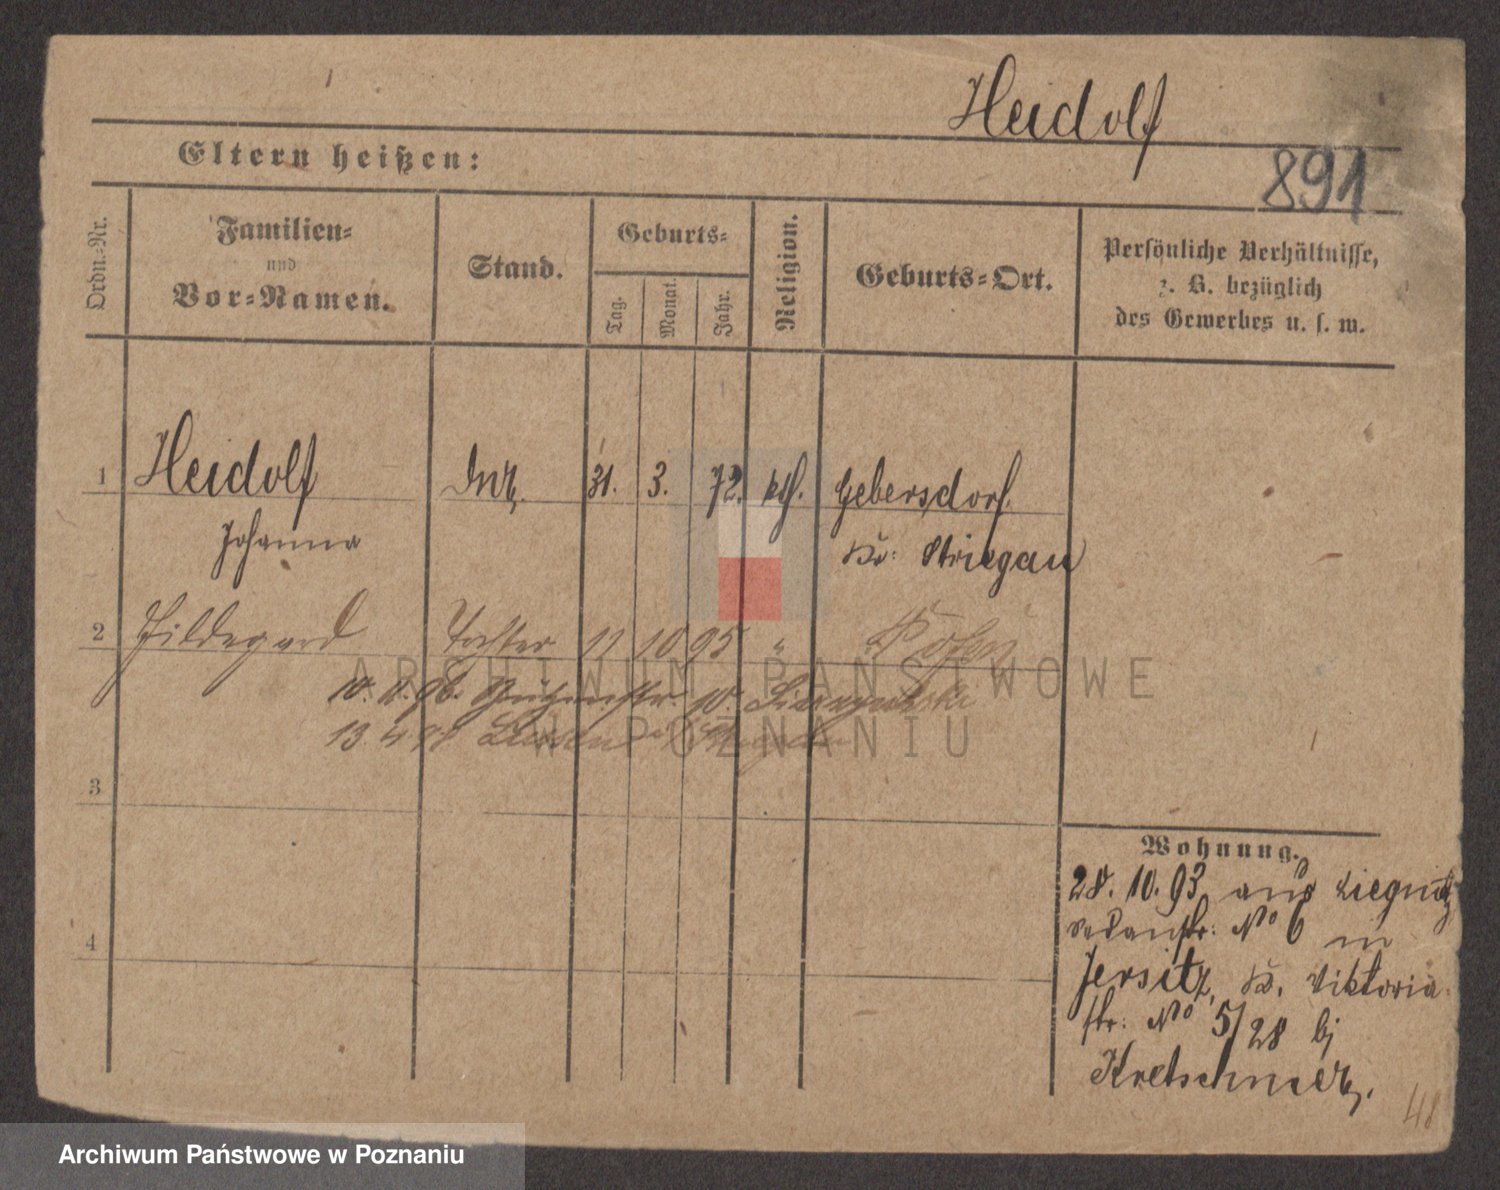 Heidolf
891
Eltern heißen:
Ordn.-Nr.
Familien-
und
Vor-Namen.
Stand.
Geburts-
Tag.
Monat.
Jahr.
Religion.
Geburts-Ort.
Persönliche Verhältnisse,
z. B. bezüglich
des Gewerbes u. s. w.
1 Heidolf 31. 3. 72. kth. Gebersdorf.
Johanna Kr: Striegau
2 Hildegard Tochter 11 10 95 " Posen
10. 96. str.
13. 4 98
3
4
Wohnung.
28. 10. 93 aus Liegnitz
Sedanstr: No 6 in
Jersitz, Viktoria
str: No 5/28 bj
Kretschmer,
48
ARCHIWUM PAŃSTWOWE
W POZNANIU
Archiwum Państwowe w Poznaniu